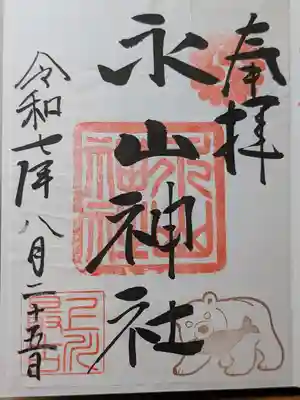 奉拝
永山神社
永山
神社
令和七年八月二十五日